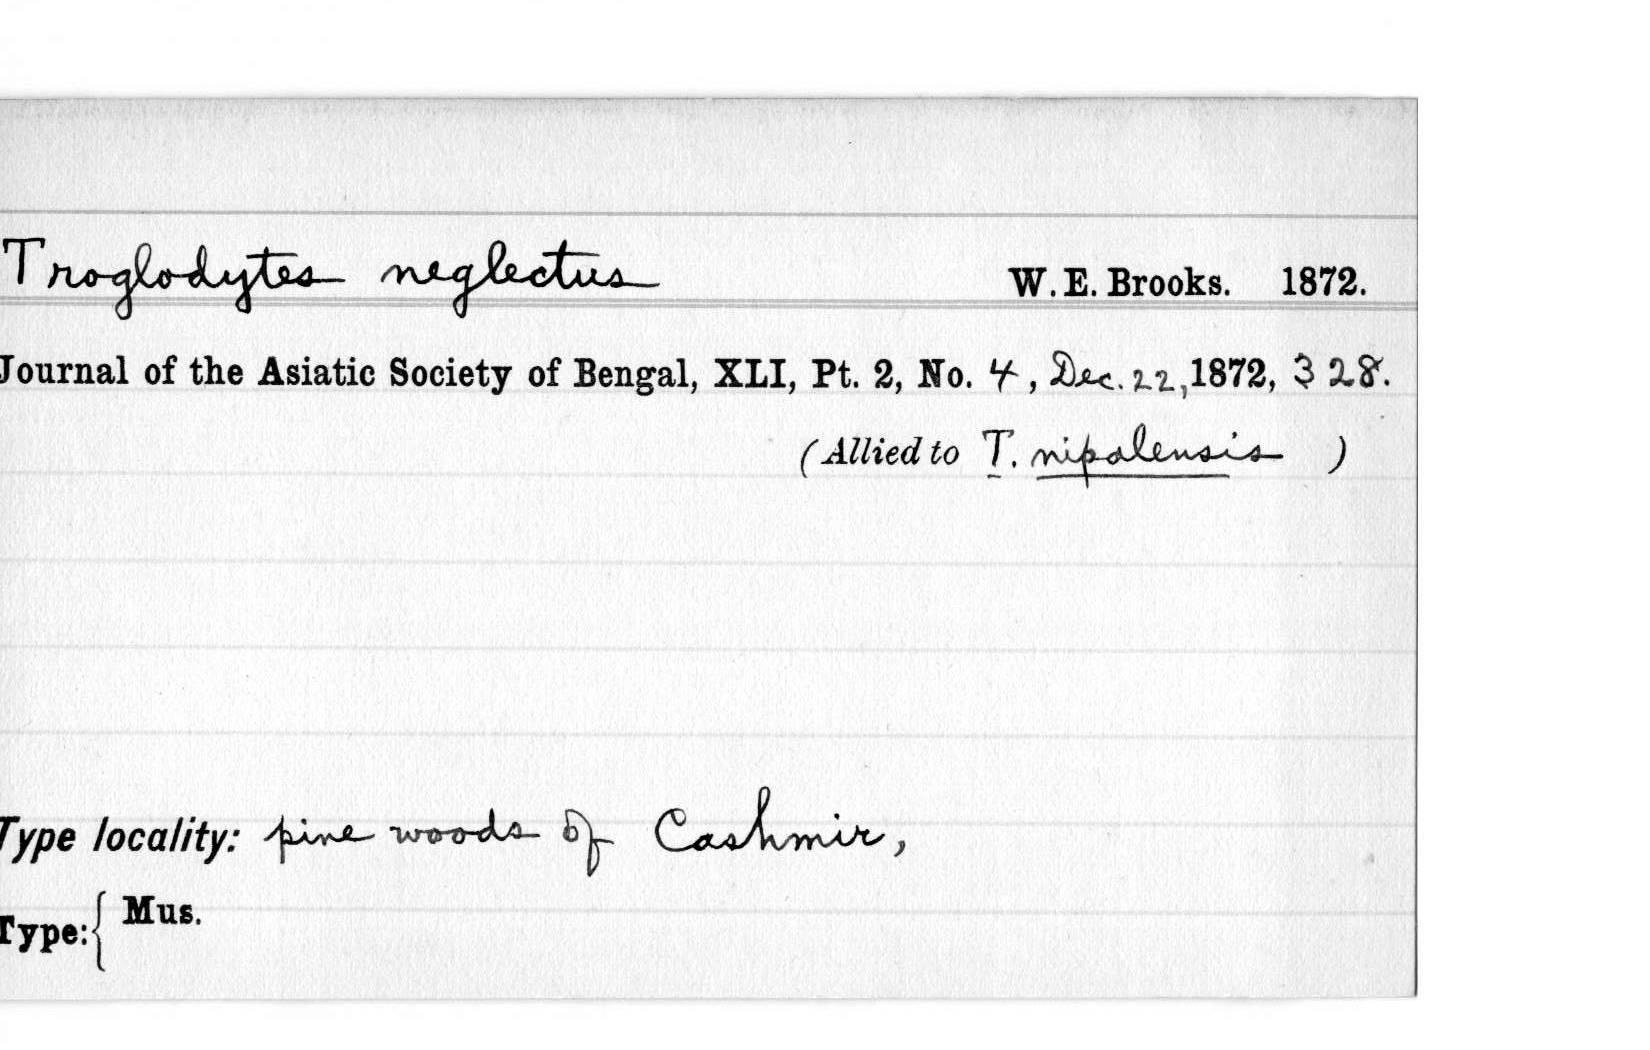 Troglodytes neglectus W. E. Brooks. 1872.
Journal of the Asiatic Society of Bengal, XLI, Pt. 2, No. 4, Dec. 22, 1872, 328.
(Allied to T. nipalensis )
Type locality: pine woods of Cashmir,
Type: { Mus.